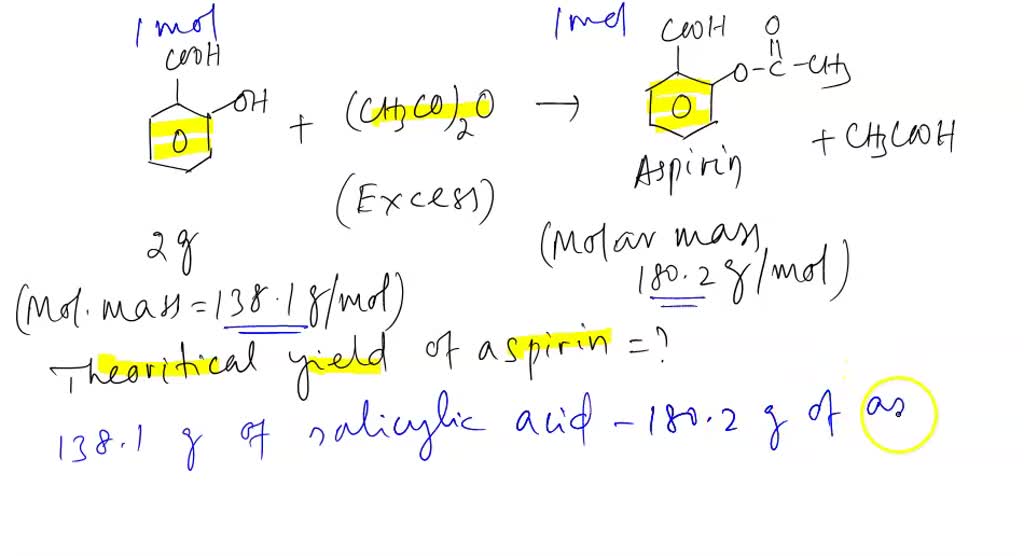 1 mol 1 mol
COOH COOH O
OH + (CH3CO)2O → O-C-CH3
+ CH3COOH
(Excess) Aspirin
2 g (Molar mass
180.2 g/mol)
(Mol. mass = 138.1 g/mol)
Theoritical yield of aspirin = ?
138.1 g of salicylic acid - 180.2 g of as